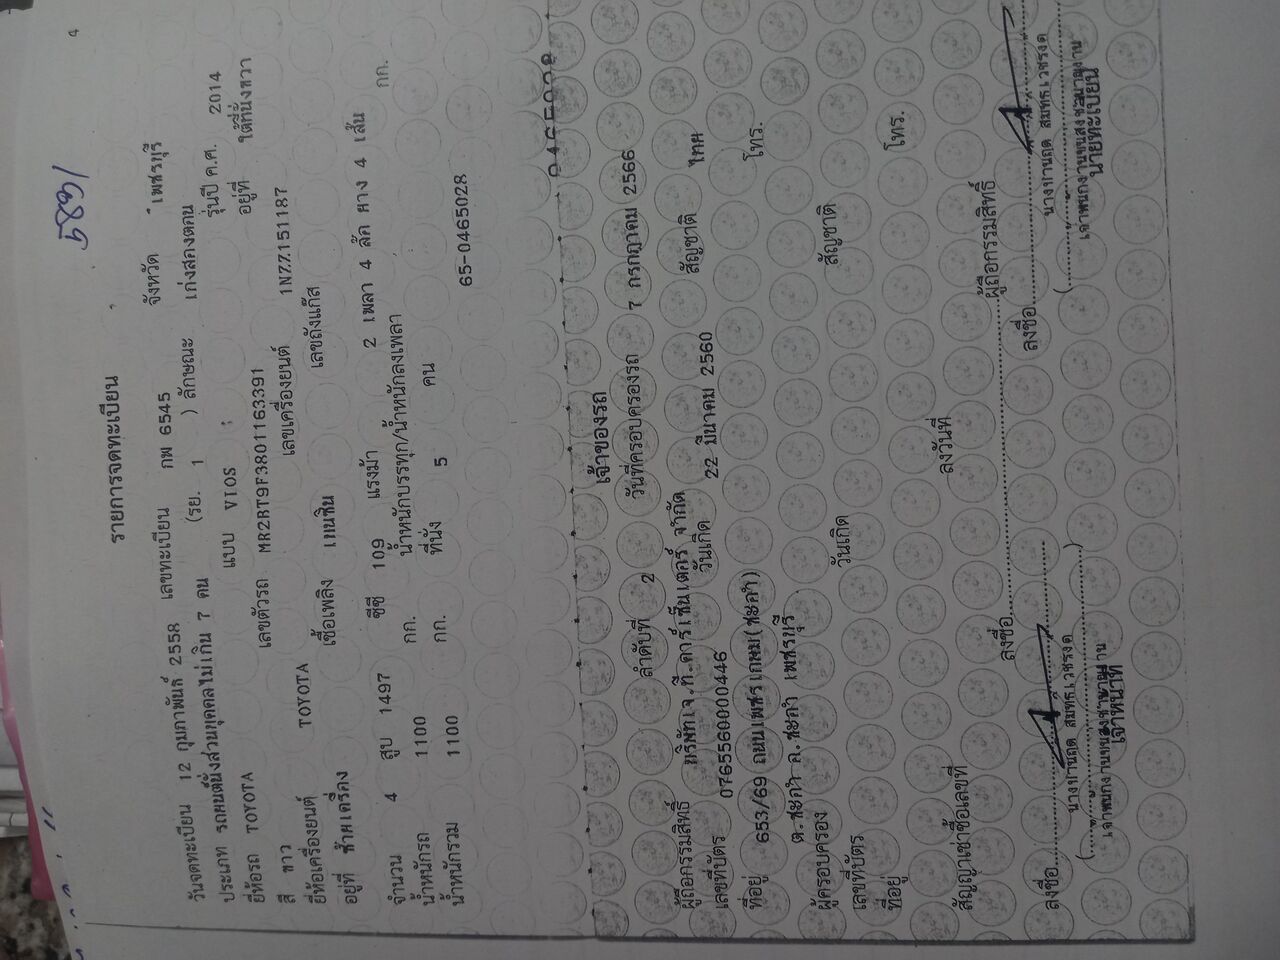 4
รายการจดทะเบียน
วันจดทะเบียน 12 กุมภาพันธ์ 2558 เลขทะเบียน กพ 6545 จังหวัด เพชรบุรี
ประเภท รถยนต์นั่งส่วนบุคคลไม่เกิน 7 คน (รย. 1 ) ลักษณะ เก๋งสองตอน
ยี่ห้อรถ TOYOTA แบบ VIOS รุ่นปี ค.ศ. 2014
สี ขาว เลขตัวรถ MR2BT9F3801163391 อยู่ที่ ใต้ที่นั่งขวา
ยี่ห้อเครื่องยนต์ TOYOTA เลขเครื่องยนต์ 1NZZ151187
อยู่ที่ ซ้ายเครื่อง เชื้อเพลิง เบนซิน เลขถังแก๊ส
จำนวน 4 สูบ 1497 ซีซี 109 แรงม้า 2 เพลา 4 ล้อ ยาง 4 เส้น
น้ำหนักรถ 1100 กก. น้ำหนักบรรทุก/น้ำหนักลงเพลา กก.
น้ำหนักรวม 1100 กก. ที่นั่ง 5 คน
65-0465028
0465028
เจ้าของรถ
ลำดับที่ 2 วันที่ครอบครองรถ 7 กรกฎาคม 2566
ผู้ถือกรรมสิทธิ์ บริษัทเจ.ที.คาร์เซ็นเตอร์ จำกัด
เลขที่บัตร 0765560000446 วันเกิด 22 มีนาคม 2560 สัญชาติ ไทย
ที่อยู่ 653/69 ถนนเพชรเกษม(ชะอำ) โทร.
ต.ชะอำ อ.ชะอำ เพชรบุรี
ผู้ครอบครอง
เลขที่บัตร วันเกิด สัญชาติ
ที่อยู่ โทร.
สัญญาเช่าซื้อเลขที่ ลงวันที่
ลงชื่อ ผู้ถือกรรมสิทธิ์
ลงชื่อ ลงชื่อ
เจ้าหน้าที่ นายทะเบียน